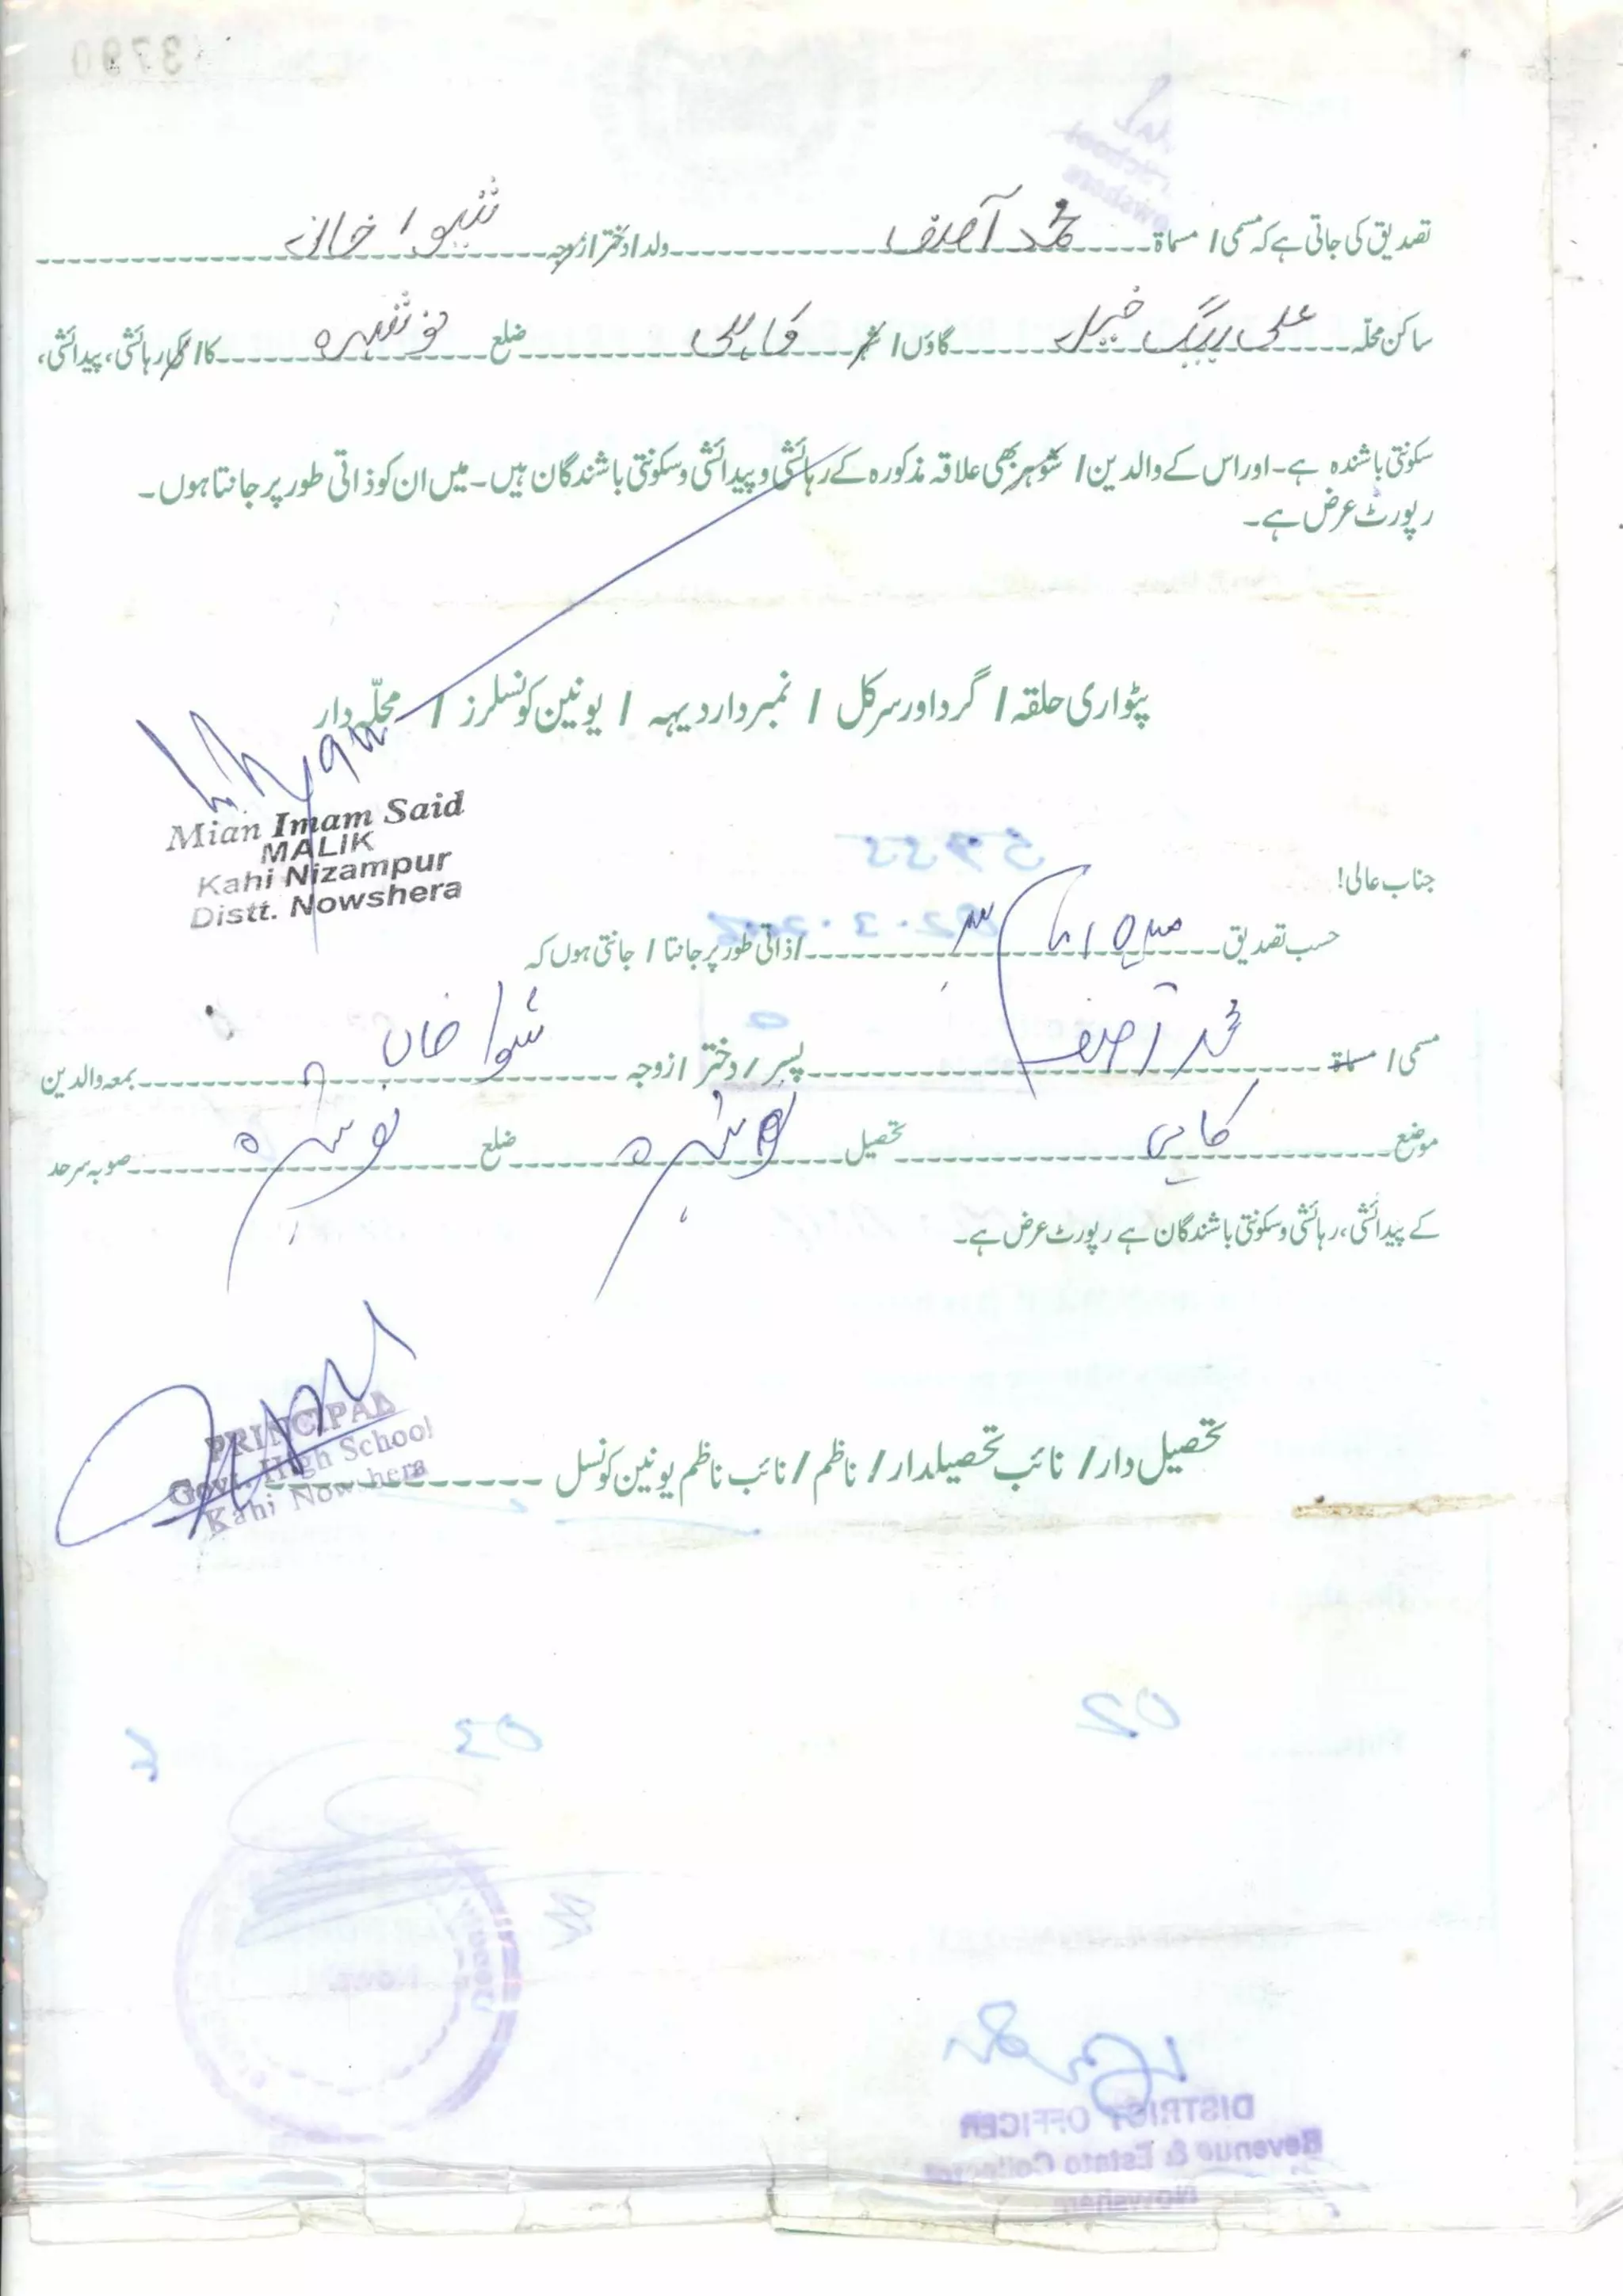 تصدیق کی جاتی ہے کہ مسمی / مسماۃ محمد آصف ولد / دختر / زوجہ شیوا خان
ساکن محلہ علی بیگ خیل گاؤں / شہر کاہی ضلع نوشہرہ کا / کی رہائشی، پیدائشی،
سکونتی باشندہ ہے۔ اور اس کے والدین / شوہر بھی علاقہ مذکورہ کے رہائشی و پیدائشی و سکونتی باشندگان ہیں۔ میں ان کو ذاتی طور پر جانتا ہوں۔
رپورٹ عرض ہے۔
پٹواری حلقہ / گرداور سرکل / نمبردار دیہہ / یونین کونسلرز / محلہ دار
Mian Imam Said
MALIK
Kahi Nizampur
Distt. Nowshera
جناب عالی!
حسب تصدیق / ذاتی طور پر جانتا / جانتی ہوں کہ
مسمی / مسماۃ محمد آصف پسر / دختر / زوجہ شیوا خان بمعہ والدین
موضع کاہی تحصیل نوشہرہ ضلع نوشہرہ صوبہ سرحد
کے پیدائشی، رہائشی و سکونتی باشندگان ہے رپورٹ عرض ہے۔
تحصیل دار / نائب تحصیلدار / ناظم / نائب ناظم یونین کونسل
PRINCIPAL
Govt. High School
Kahi Nowshera